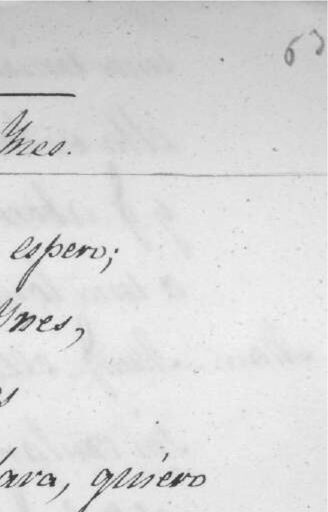 63
Ynes.
espero;
Ynes,
es
lara, quiero